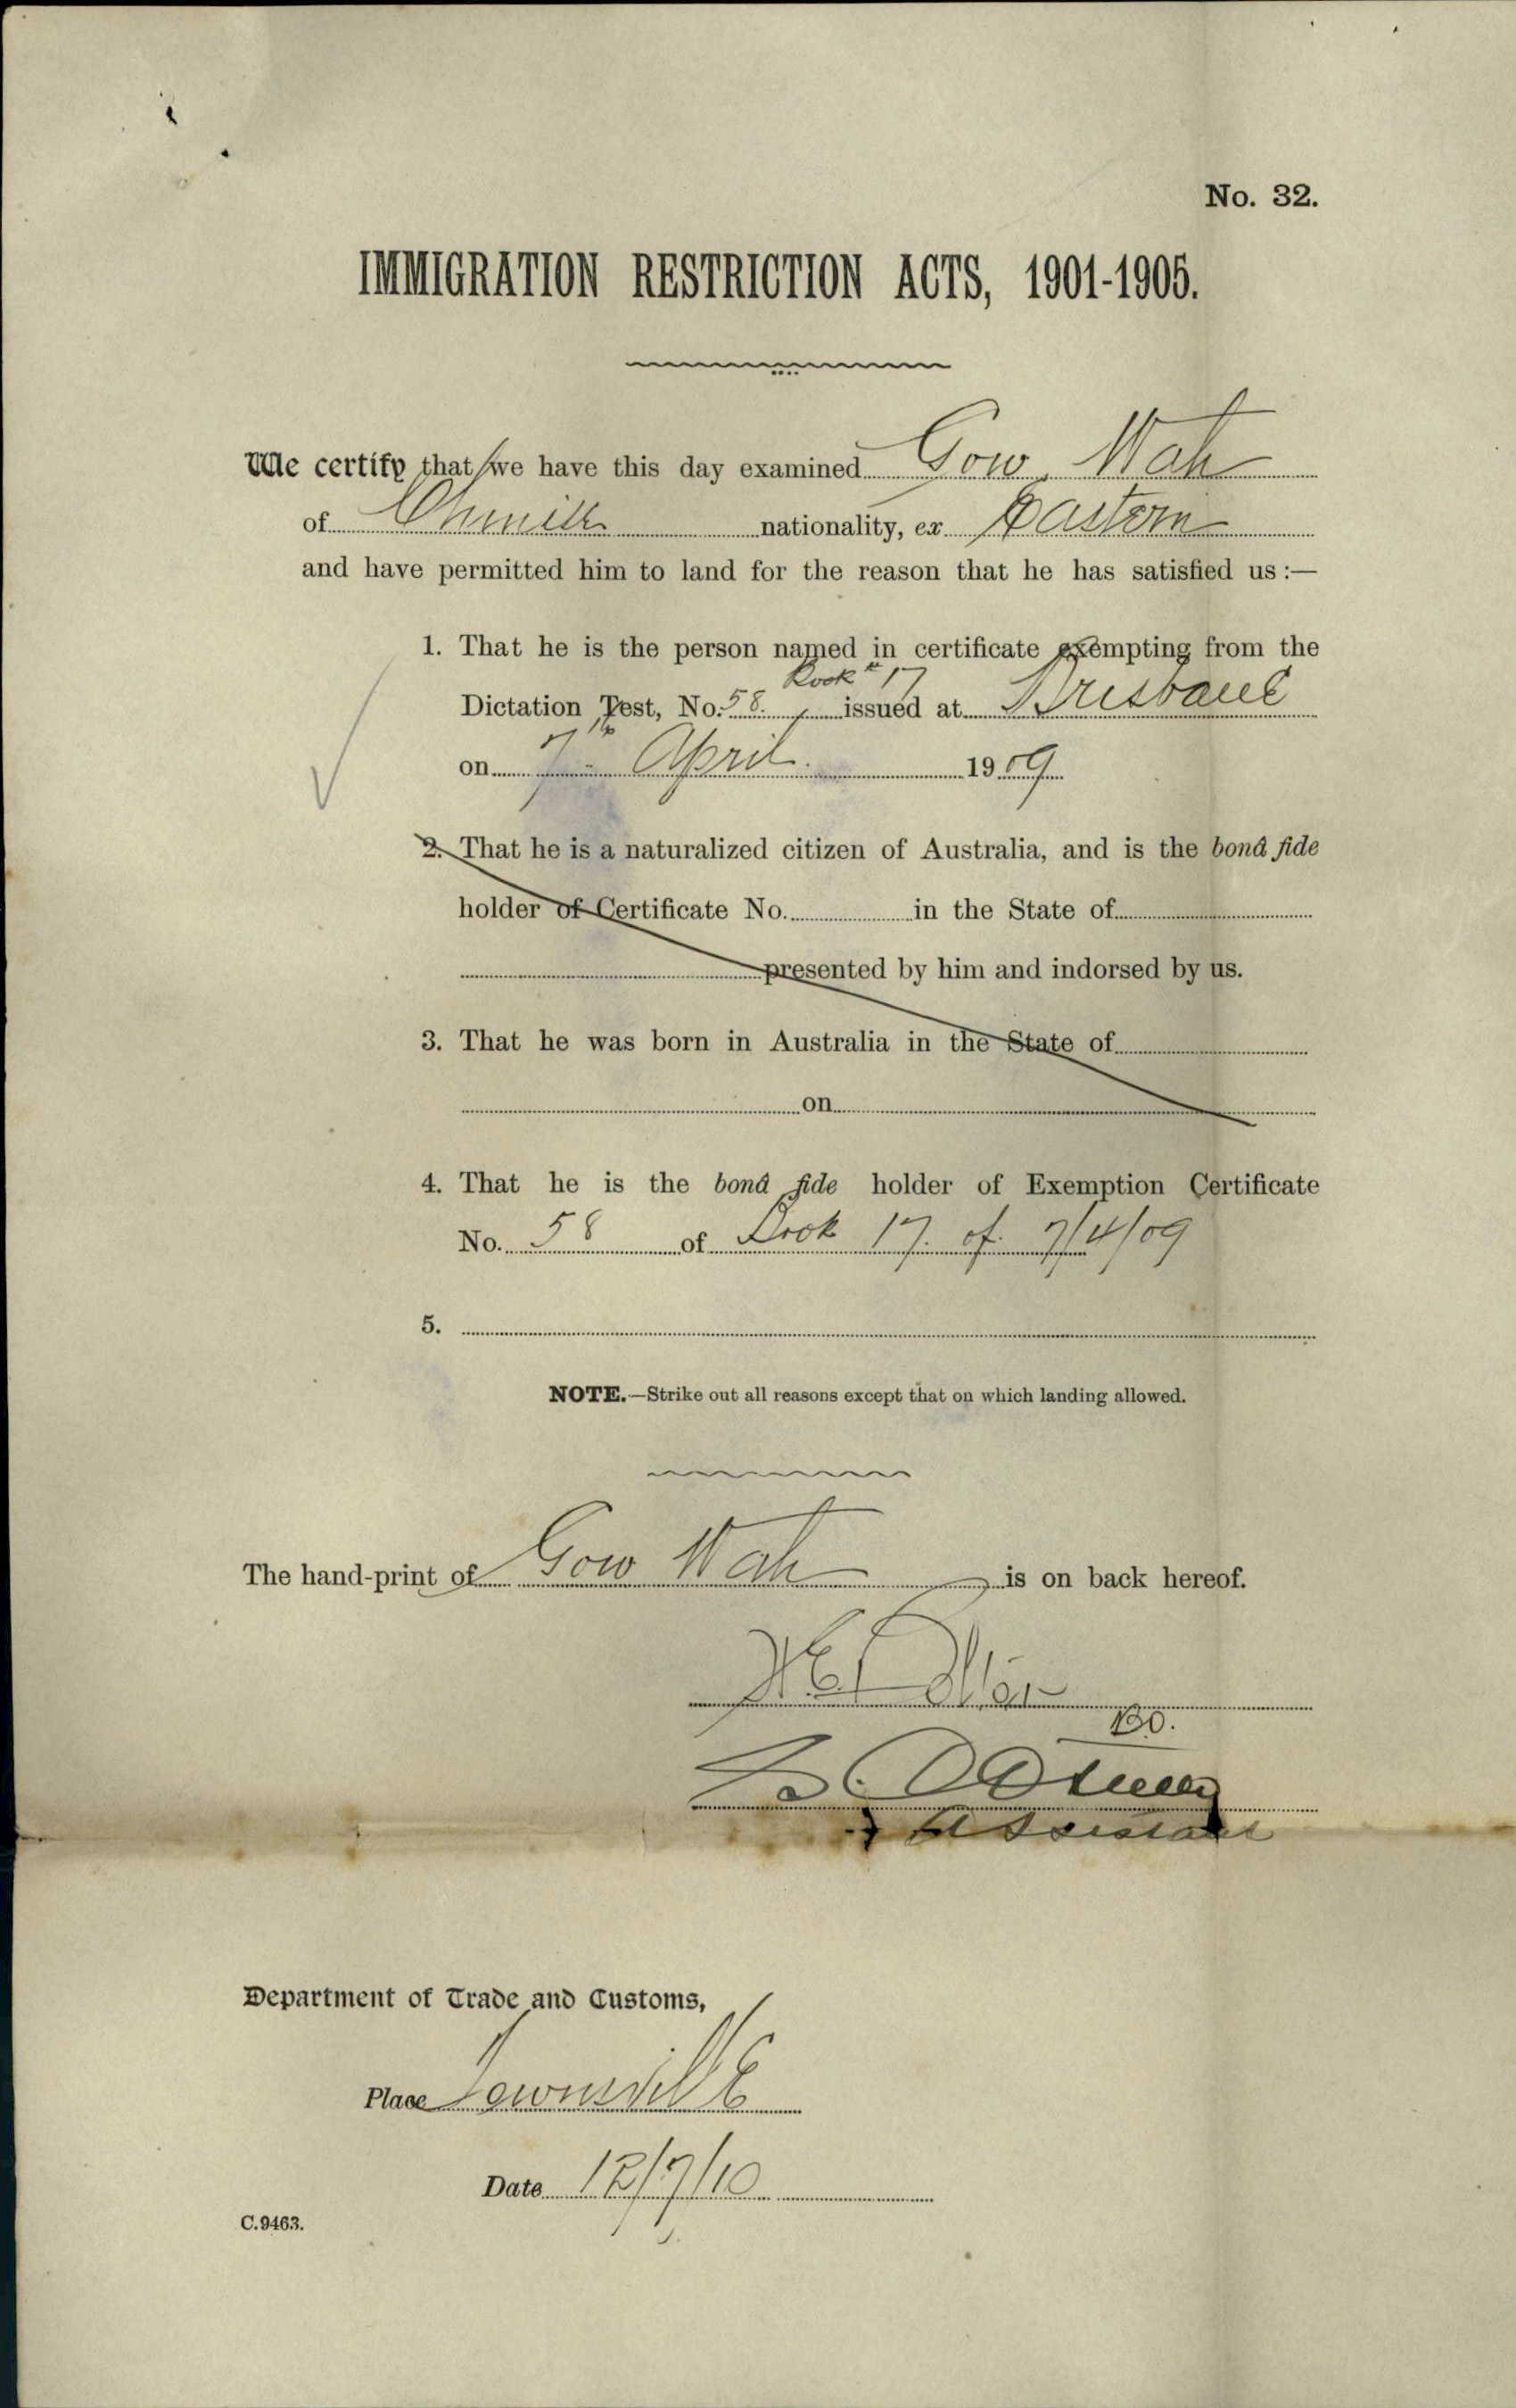 No. 32.
IMMIGRATION RESTRICTION ACTS, 1901-1905.
We certify that we have this day examined Gow Wah
of Chinese nationality, ex Eastern
and have permitted him to land for the reason that he has satisfied us :—
1. That he is the person named in certificate exempting from the
Book 17
Dictation Test, No. 58. issued at Brisbane
on 7th April. 1909
2. That he is a naturalized citizen of Australia, and is the bonâ fide
holder of Certificate No. in the State of
presented by him and indorsed by us.
3. That he was born in Australia in the State of
on
4. That he is the bonâ fide holder of Exemption Certificate
No. 58 of Book 17. of 7/4/09
5.
NOTE.—Strike out all reasons except that on which landing allowed.
The hand-print of Gow Wah is on back hereof.
Assistant
Department of Trade and Customs,
Place Townsville
Date 12/7/10
C.9463.